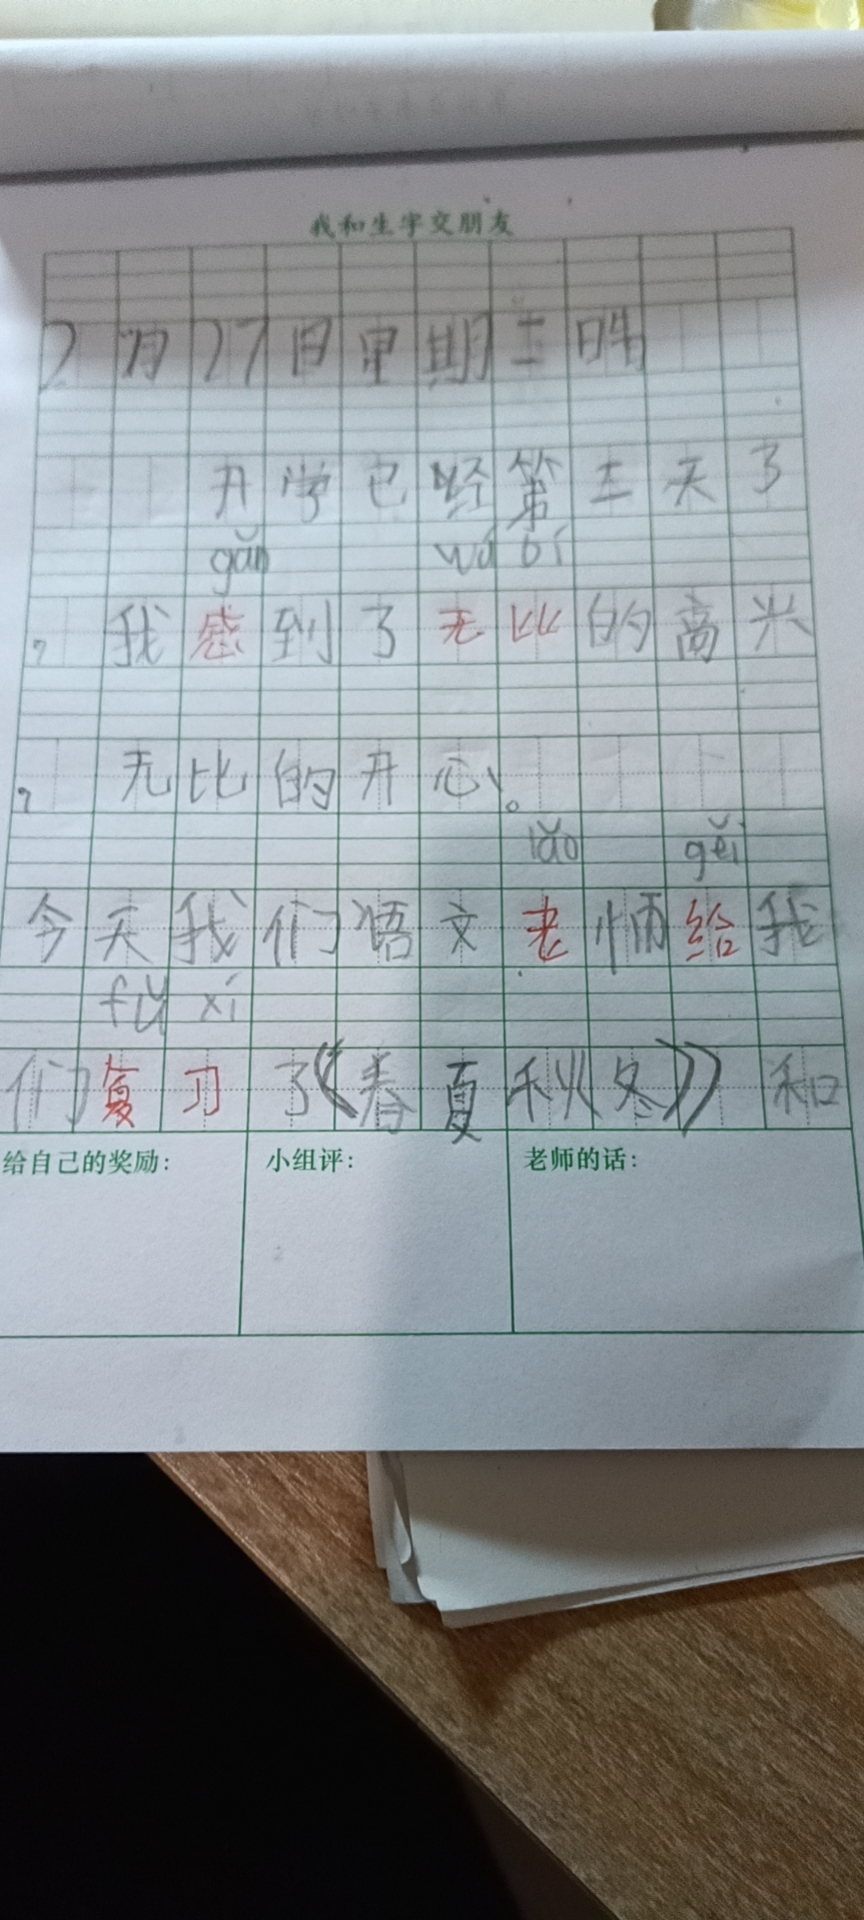 我和生字交朋友
2月27日星期三晴
开学已经第三天了
gǎn wú bǐ
，我感到了无比的高兴
，无比的开心。
lǎo gěi
今天我们语文老师给我
fù xí
们复习了《春夏秋冬》和
给自己的奖励： 小组评： 老师的话：